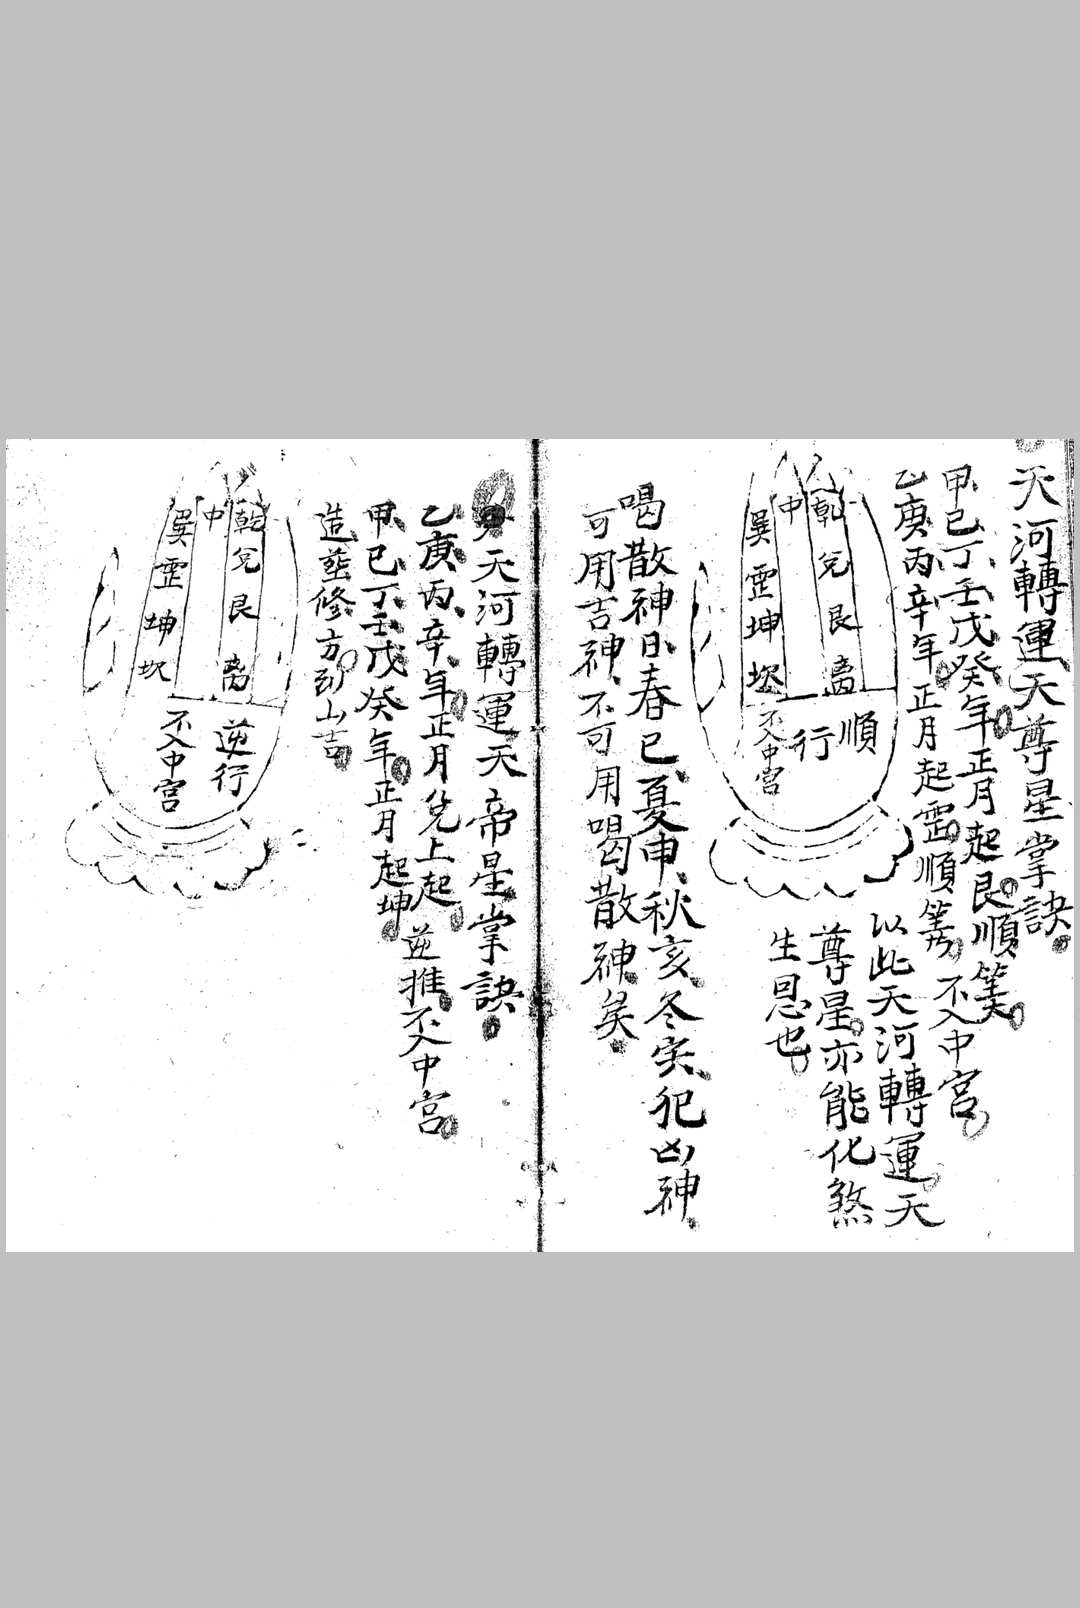 天河轉運天尊星掌訣
甲己丁壬戊癸年正月起艮順筭
乙庚丙辛年正月起震順筭不入中宮
以此天河轉運天
尊星亦能化煞
生恩也
中
乾兌艮離
巽震坤坎
順行
不入中宮
喝散神日春巳夏申秋亥冬寅犯凶神
可用吉神不可用喝散神矣
天河轉運天帝星掌訣
乙庚丙辛年正月兌上起逆推不入中宮
甲己丁壬戊癸年正月起坤
造葬修方到山吉
中
乾兌艮離
巽震坤坎
逆行
不入中宮